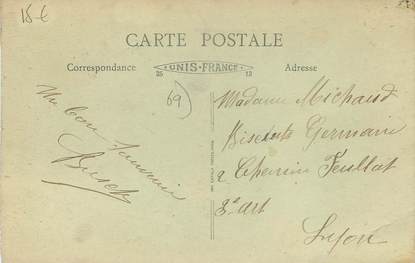 15 €
CARTE POSTALE
Correspondance
UNIS-FRANCE
25 13
Adresse
69
Un bon souvenir
Madame Michaud
Germain
2 Chemin Feuillat
3e art
Lyon